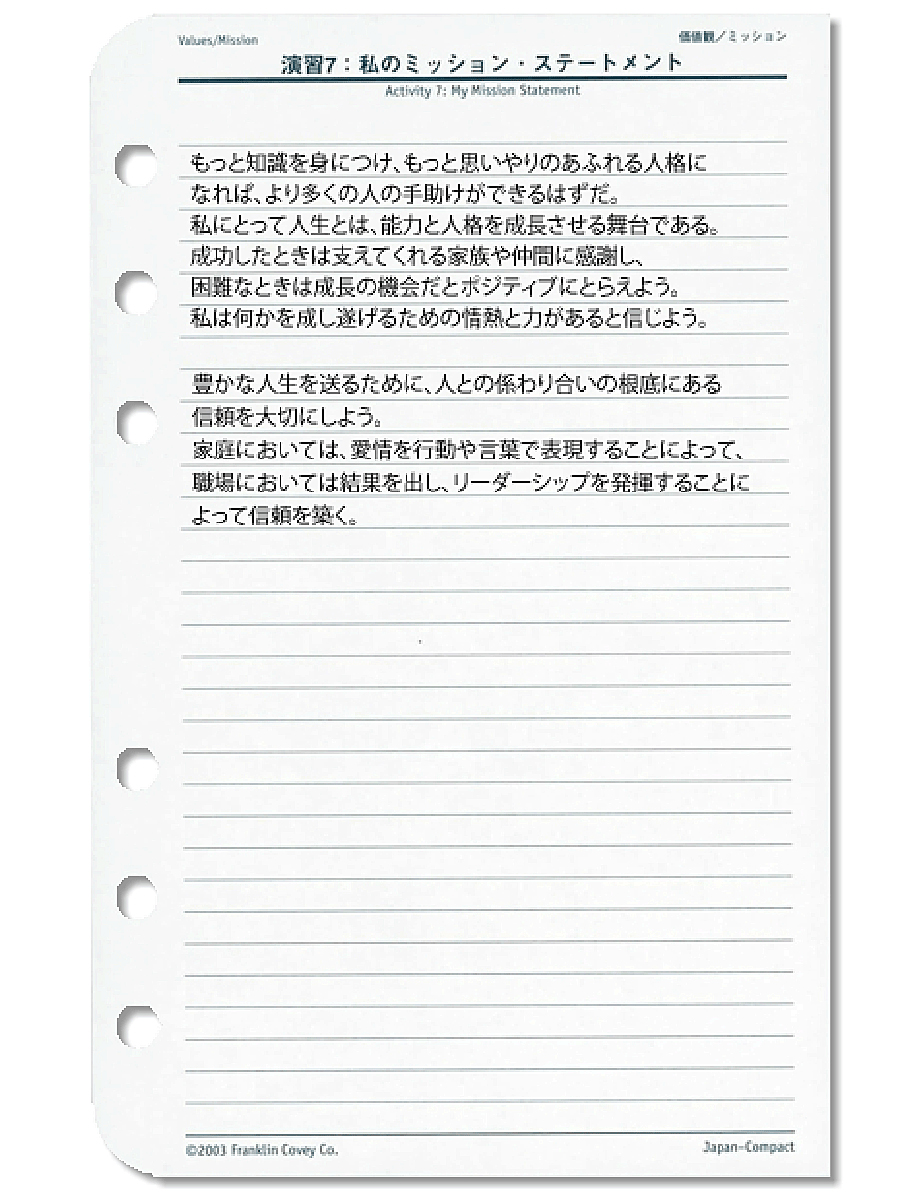 Values/Mission
価値観／ミッション
演習7：私のミッション・ステートメント
Activity 7: My Mission Statement
もっと知識を身につけ、もっと思いやりのあふれる人格に
なれば、より多くの人の手助けができるはずだ。
私にとって人生とは、能力と人格を成長させる舞台である。
成功したときは支えてくれる家族や仲間に感謝し、
困難なときは成長の機会だとポジティブにとらえよう。
私は何かを成し遂げるための情熱と力があると信じよう。
豊かな人生を送るために、人との係わり合いの根底にある
信頼を大切にしよう。
家庭においては、愛情を行動や言葉で表現することによって、
職場においては結果を出し、リーダーシップを発揮することに
よって信頼を築く。
©2003 Franklin Covey Co.
Japan-Compact